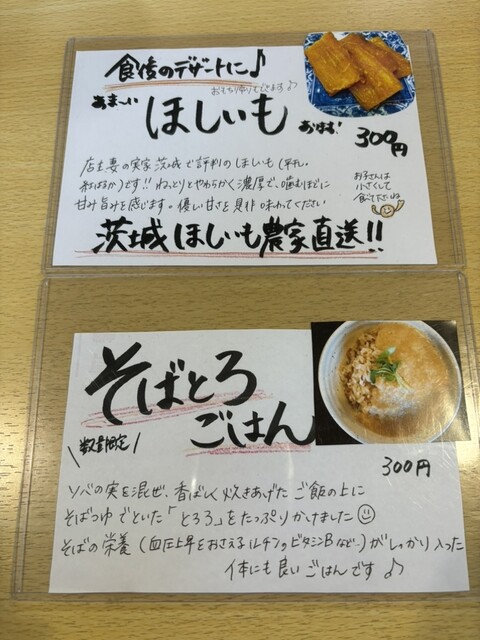 食後のデザートに♪
おもち帰りもできます♪
あま～い
ほしいも
300円
店主妻の実家茨城で評判のほしいも(平干し・
紅はるか)です!! ねっとりとやわらかく濃厚で、噛むほどに
甘み旨みを感じます。優しい甘さを是非味わってください
お子さんは
小さくして
食べて下さいね
茨城ほしいも農家直送!!
そばとろ
ごはん
数量限定
300円
ソバの実を混ぜ、香ばしく炊きあげたご飯の上に
そばつゆでといた「とろろ」をたっぷりかけました
そばの栄養(血圧上昇をおさえるルチンやビタミンBなど…)がしっかり入った
体にも良いごはんです♪